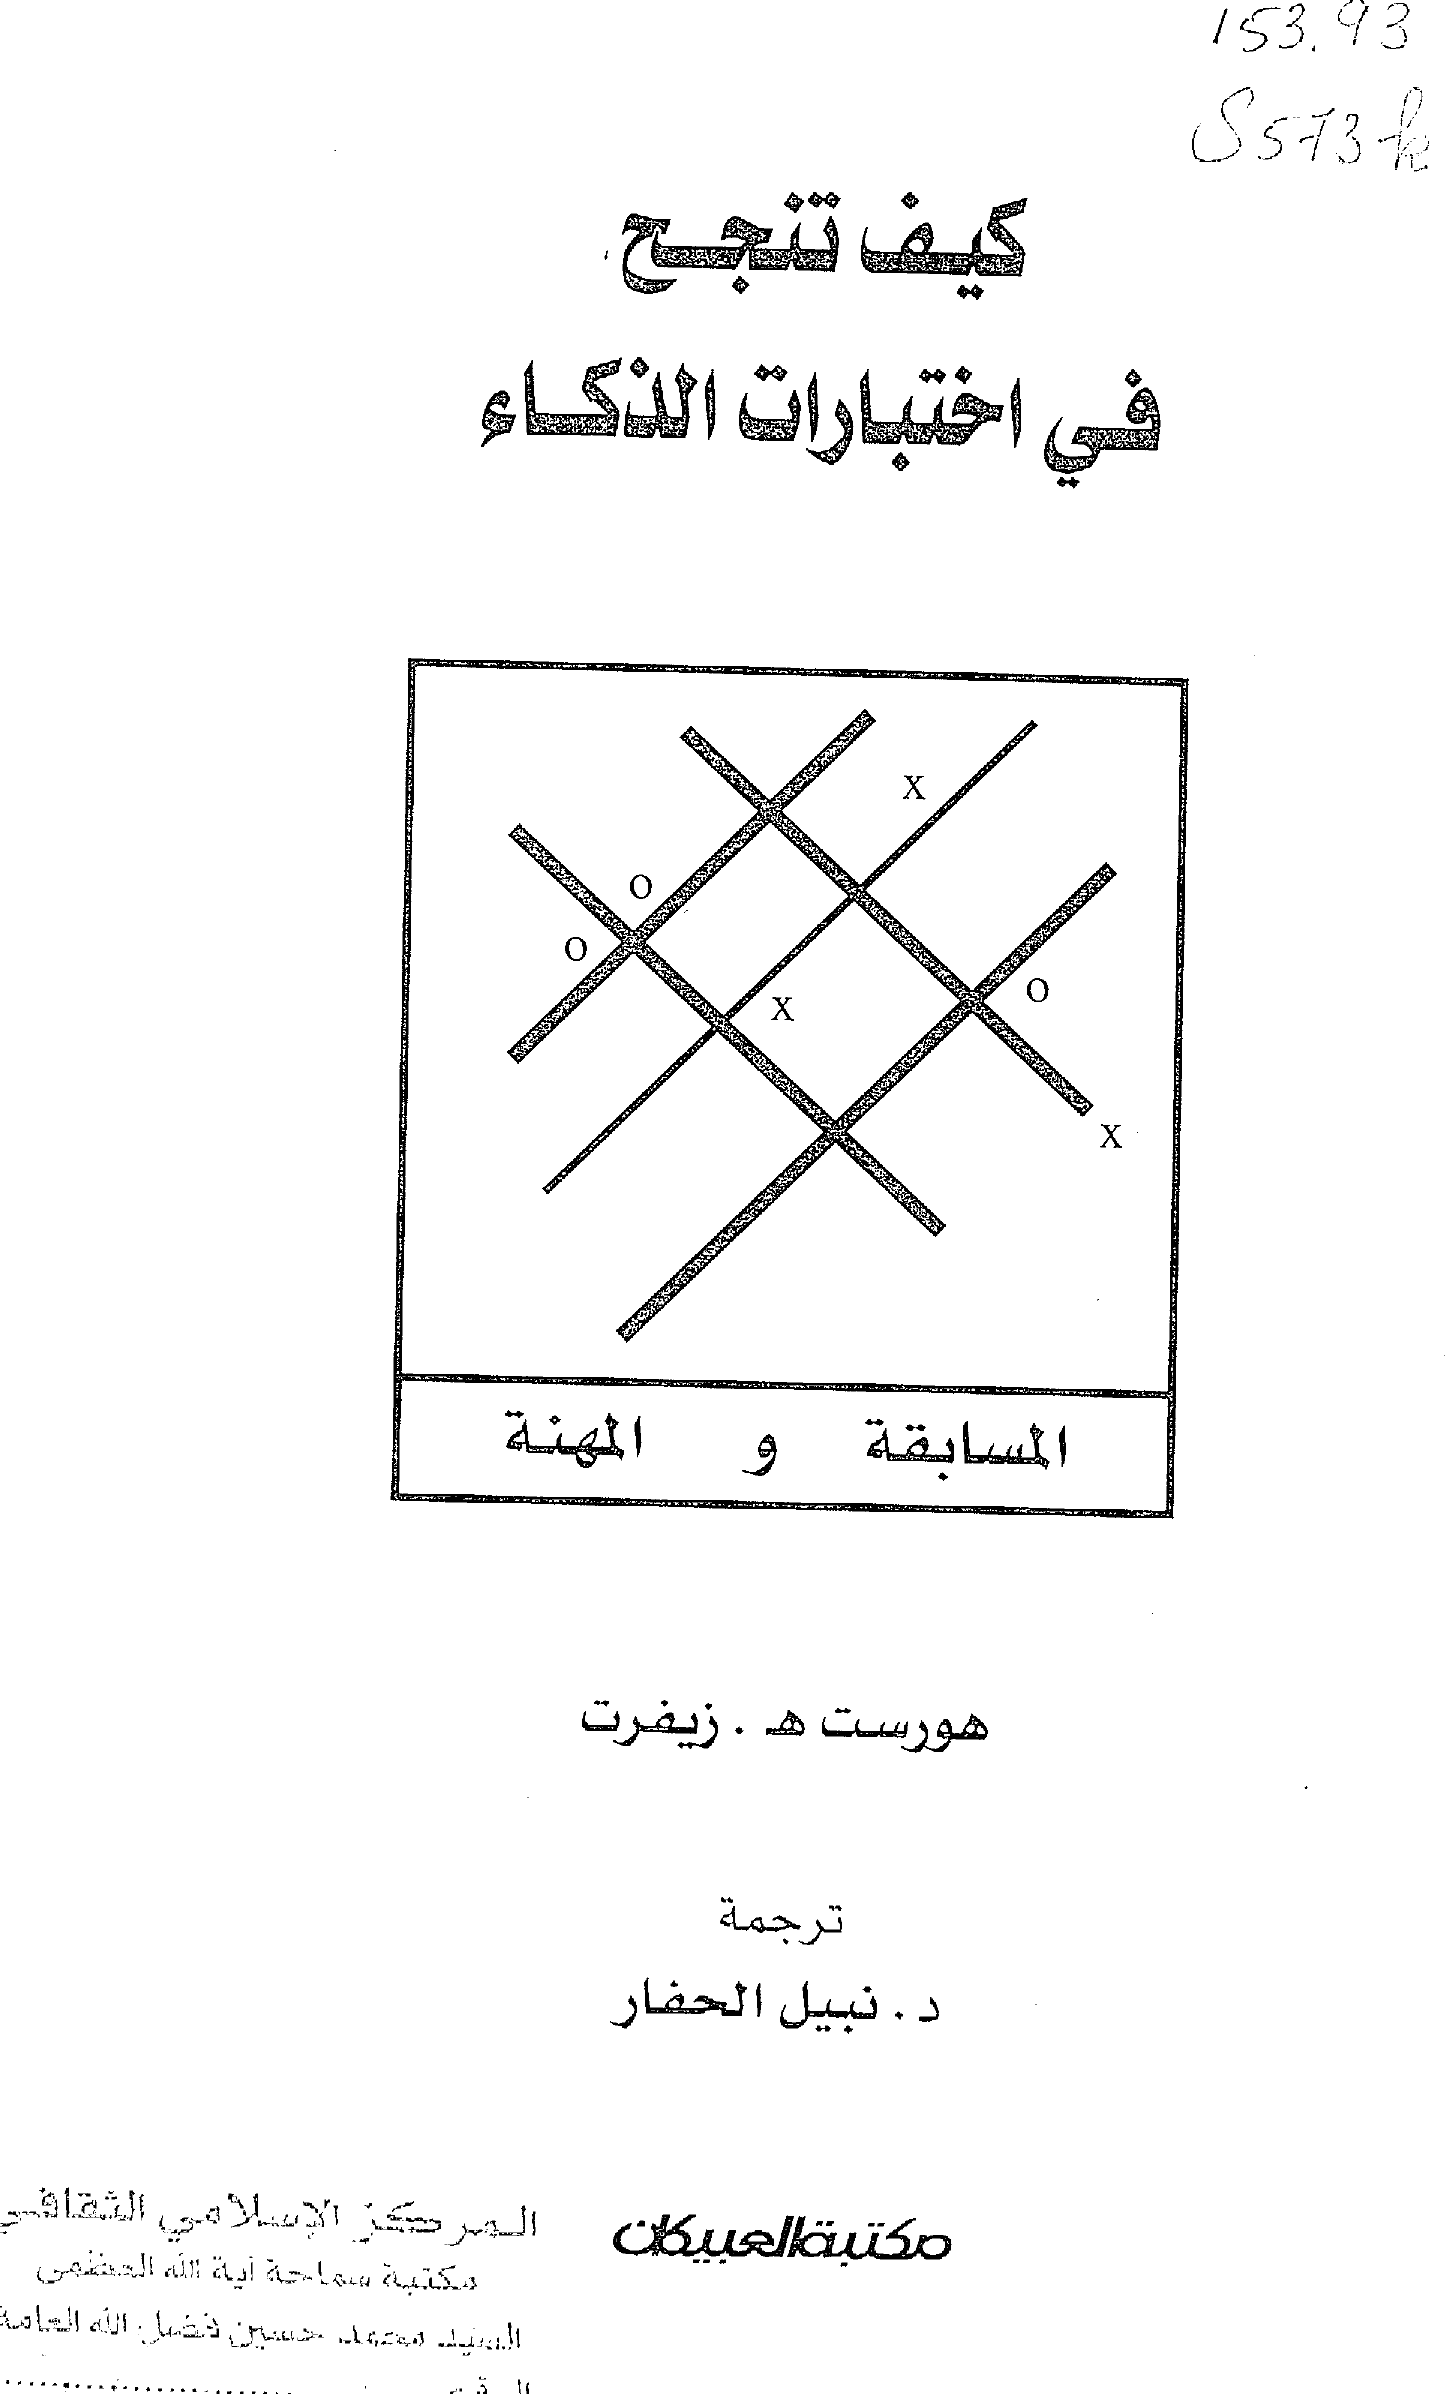 153.93
S573k
كيف تنجح
في اختبارات الذكاء
X
O
O
O
X
X
المسابقة و المهنة
هورست هـ . زيفرت
ترجمة
د . نبيل الحفار
مكتبة العبيكان
المركز الإسلامي الثقافي
مكتبة سماحة آية الله العظمى
السيد محمد حسين فضل الله العامة